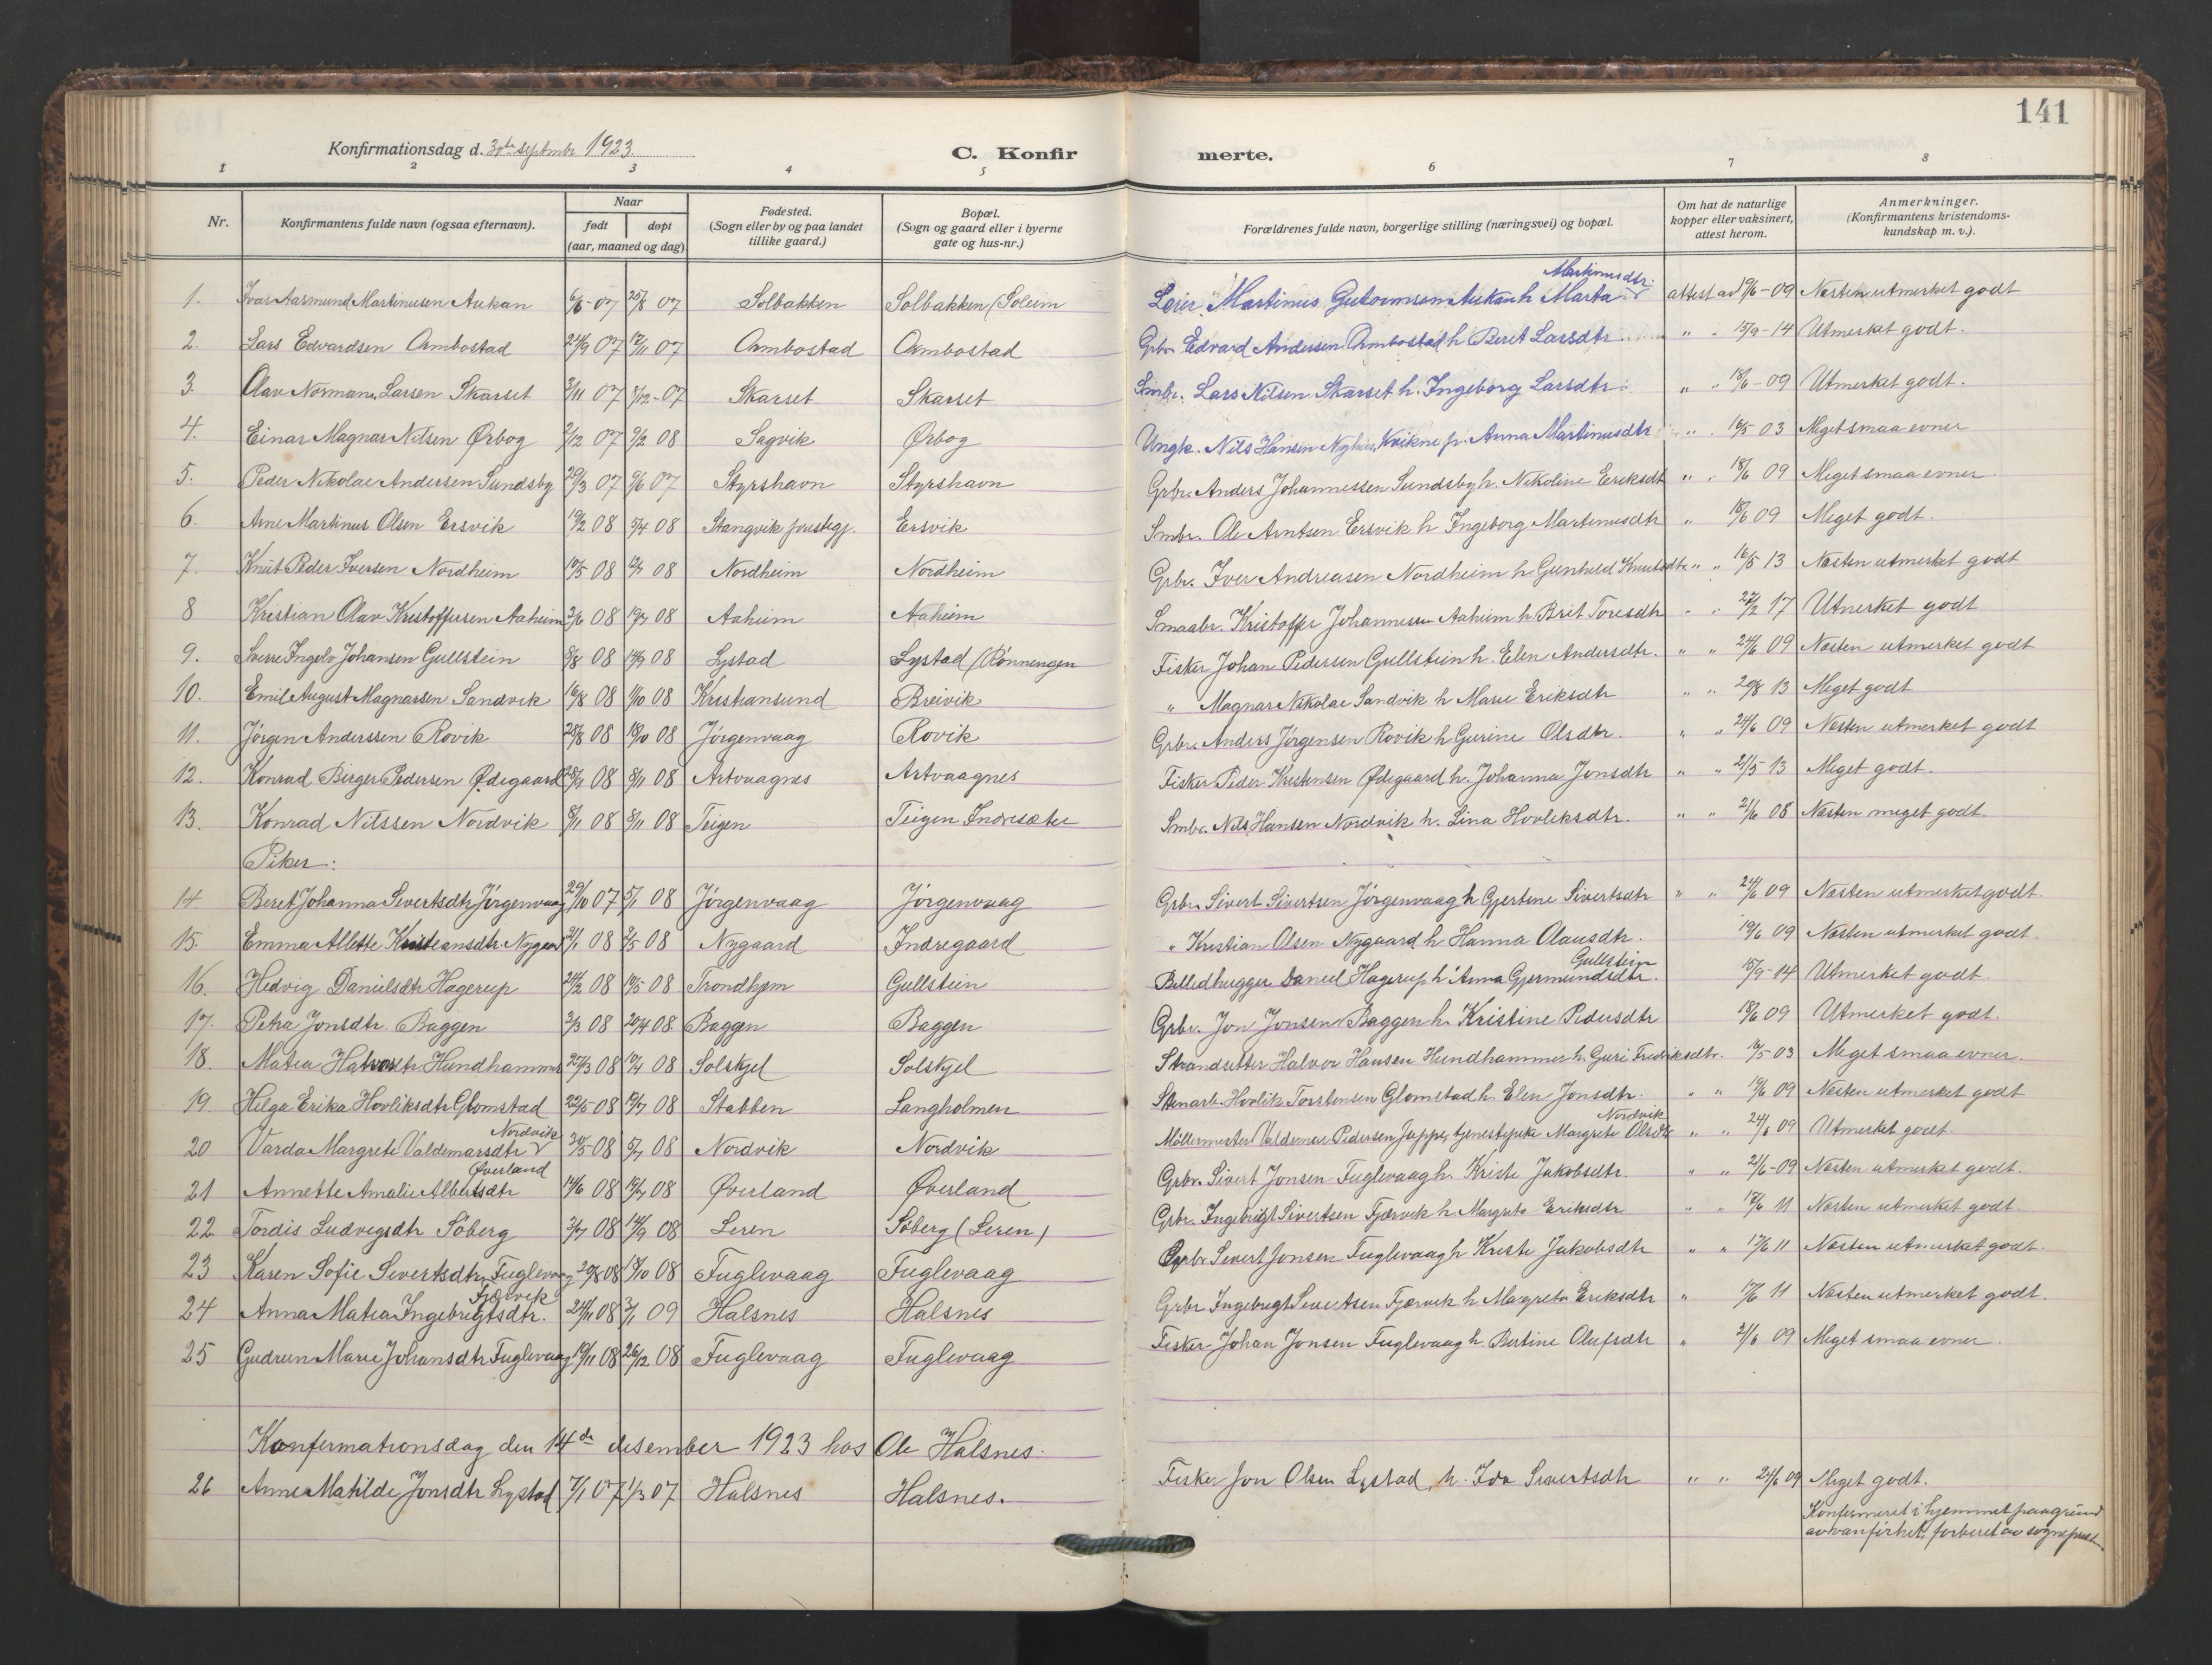 141
Konfirmationsdag d. 30te septembr 1923.
C. Konfirmerte.
1 2 3 4 5 6 7 8
Nr. | Konfirmantens fulde navn (ogsaa efternavn). | Naar født | døpt (aar, maaned og dag) | Fødested. (Sogn eller by og paa landet tillike gaard.) | Bopæl. (Sogn og gaard eller i byerne gate og hus-nr.) | Forældrenes fulde navn, borgerlige stilling (næringsvei) og bopæl. | Om hat de naturlige kopper eller vaksinert, attest herom. | Anmerkninger. (Konfirmantens kristendomskundskap m. v.).
1. Ivar Aasmund Martinusen Aukan 6/6-07 25/8 07 Solbakken Solbakken (Soleim Leier. Martinus Guttormsen Aukan h Marta Martinusdtr. attest av 19/6-09 Næsten utmerket godt
2. Lars Edvardsen Ormbostad 24/9 07 17/11 07 Ormbostad Ormbostad Grbr. Edvard Andersen Ormbostad h Beret Larsdtr " " 15/9-14 Utmerket godt.
3. Olav Normann Larsen Skarset 3/11 07 8/12-07 Skarset Skarset Smbr. Lars Nilsen Skarset h. Ingeborg Larsdtr. " " 18/6-09 Utmerket godt.
4. Einar Magnar Nilsen Ørbog 2/12 07 9/2 08 Sagvik Ørbog Ungk. Nils Hansen Nyhus, Kvikne p. Anna Martinusdtr " " 16/5 03 Meget smaa evner
5. Peder Nikolai Andersen Sundsby 29/3 07 9/6 07 Styrshavn Styrshavn Grbr. Anders Johannessen Sundsby h. Nikoline Eriksdt " " 18/6 09 Meget smaa evner
6. Arne Martinus Olsen Ersvik 19/2 08 5/4 08 Stangvik prestegj. Ersvik Smbr. Ole Arntsen Ersvik h Ingeborg Martinusdtr " 18/6 09 Meget godt.
7. Knut Peder Iversen Nordheim 10/5 08 12/7 08 Nordheim Nordheim Grbr. Iver Andreasen Nordheim h. Gunhild Knutsdtr " " 16/5 13 Næsten utmerket godt
8 Kristian Olav Kristoffersen Aaheim 3/6 08 19/7 08 Aaheim Aaheim Smaabr. Kristoffer Johannessen Aaheim h. Brit Toresdtr " " 22/2 17 Utmerket godt
9. Sverre Ingolv Johansen Gullstein 8/8 08 14/9 08 Lystad Lystad (Rønningen Fisker Johan Pedersen Gullstein h. Elen Andersdtr. " " 24/6 09 Næsten utmerket godt
10. Emil August Magnarsen Sandvik 16/8 08 11/10 08 Kristiansund Breivik " Magnar Nikolai Sandvik h Marie Eriksdtr " " 20/8 13 Meget godt
11. Jørgen Anderssen Rovik 28/8 08 18/10 08 Jørgenvaag Rovik Grbr. Anders Jørgensen Rovik h Gurine Olsdtr. " " 24/6 09 Næsten utmerket godt
12. Konrad Birger Pedersen Ødegaard 28/9 08 8/11 08 Artvaagnes Artvaagnes Fisker Peder Kristensen Ødegaard h. Johanna Jonsdtr " " 21/5-13 Meget godt.
13. Konrad Nilssen Nordvik 8/11 08 8/11 08 Teigen Teigen Indresæter Smbr. Nils Hansen Nordvik h. Lina Hovliksdtr. " " 21/6 08 Næsten meget godt.
Piker:
14 Beret Johanna Sivertsdtr Jørgenvaag 29/10 07 5/1 08 Jørgenvaag Jørgenvaag Grbr. Sivert Sivertsen Jørgenvaag h Gjertine Sivertsdtr " " 24/6 09 Næsten utmerket godt.
15. Emma Allette Kristiansdtr Nygaard 21/1 08 3/5 08 Nygaard Indregaard " Kristian Olsen Nygaard h Hanna Olausdtr. 19/6 09 Næsten utmerket godt.
16. Hedvig Danielsdtr Hagerup 24/2 08 10/5 08 Trondhjem Gullstein Billedhugger Daniel Hagerup h Anna Gjermundsdtr. Gullstein 15/9-14 Utmerket godt.
17. Petra Jonsdtr. Baggen 3/3 08 20/4 08 Baggen Baggen Grbr. Jon Jonsen Baggen h. Kristine Pedersdtr 18/6 09 Utmerket godt.
18. Matea Halvorsdtr Hundhammer 25/3 08 19/4 08 Solskjel Solskjel Strandsitter Halvor Hansen Hundhammer h. Guri Fredriksdtr. 16/5 03 Meget smaa evner.
19 Helga Erika Hovliksdtr Glomstad 22/5-08 12/7 08 Stabben Langholmen Stenarb. Hovlik Torstensen Glomstad h. Elen Jonsdtr. " " 19/6 09 Næsten utmerket godt
20 Varda Margrete Valdemarsdtr Nordvik 30/5-08 5/7 08 Nordvik Nordvik Møllermester Valdemar Pedersen Jappe, tjenestepike Margrete Olsdtr Nordvik " " 24/6 09 Utmerket godt.
21 Annette Amalie Albertsdtr Øverland 14/6 08 19/7 08 Øverland Øverland Grbr. Sivert Jonsen Fuglevaag h. Kristi Jakobsdtr. " " 21/6-09 Næsten utmerket godt.
22 Tordis Ludvigsdtr Söberg 3/7 08 14/9 08 Leren Söberg (Leren) Grbr. Ingebrigt Sivertsen Fjærvik h Margreta Eriksdtr " " 17/6 11 Næsten utmerket godt.
23 Karen Sofie Sivertsdtr Fuglevaag 29/8 08 18/10 08 Fuglevaag Fuglevaag Grbr Sivert Jonsen Fuglevaag h Kristi Jakobsdtr " " 17/6 11 Næsten utmerket godt.
24 Anna Matea Ingebrigtsdtr. Fjærvik 24/11 08 3/1 09 Halsnes Halsnes Grbr Ingebrigt Sivertsen Fjærvik h Margreta Eriksdtr " 17/6 11 Næsten utmerket godt.
25 Gudrun Marie Johansdtr Fuglevaag 19/11 08 26/12 08 Fuglevaag Fuglevaag Fisker Johan Jonsen Fuglevaag h. Bertine Olufsdtr " 21/6 09 Meget smaa evner
Konfirmationsdag den 14de desember 1923 hos Ole Halsnes.
26 Anne Matilde Jonsdtr Lystad 7/1 07 1/3 07 Halsnes Halsnes. Fisker Jon Olsen Lystad, h. Ida Sivertsdtr " " 24/6 09 Meget godt.
Konfirmeret i hjemmet paa grund
av vanførhet, forberet av sogneprest